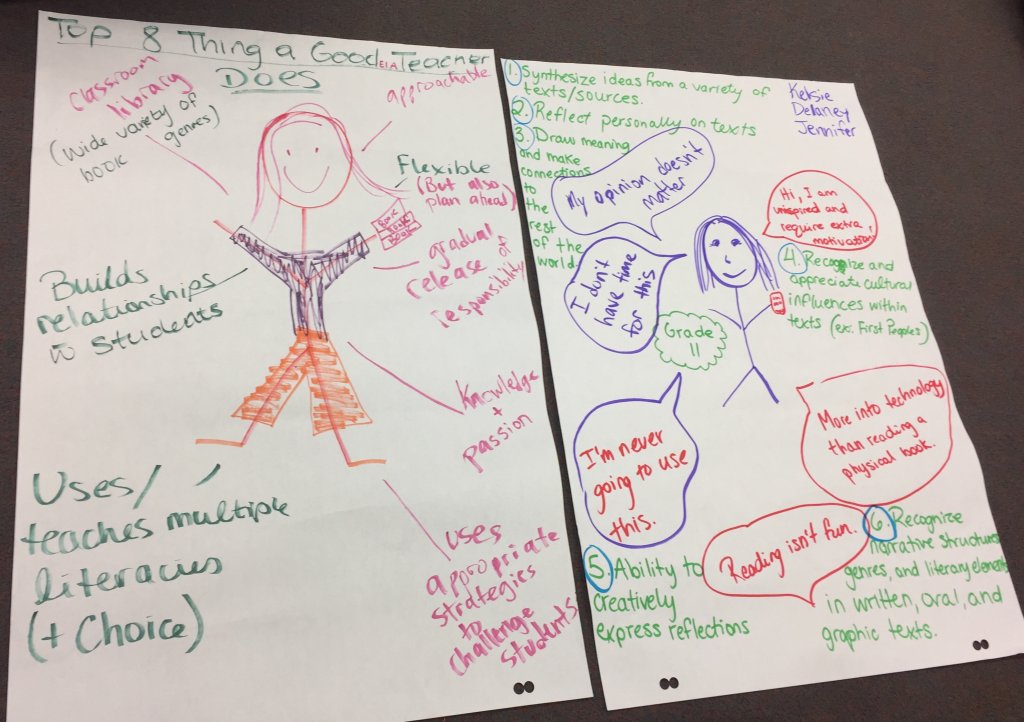 Top 8 Thing a Good ElA Teacher
Does
Classroom
library
(Wide variety of
book genres)
approachable
Flexible
(But also
plan ahead)
Book
Book
Book
gradual
release of
responsibility
Builds
relationships
w students
Knowledge
+
passion
Uses/
teaches multiple
literacies
(+ Choice)
uses
appropriate
strategies
to
challenge
students.
1. Synthesize ideas from a variety of
texts/sources.
2. Reflect personally on texts
3. Draw meaning
and make
connections
to
the
rest
of the
world
Kelsie
Delaney
Jennifer
My opinion doesn't
matter
Hi, I am
uninspired and
require extra
motivation
I don't
have time
for this
4. Recognize and
appreciate cultural
influences within
texts (ex. First Peoples)
Grade
11
I'm never
going to use
this.
More into technology
than reading a
physical book.
Reading isn't fun.
5. Ability to
creatively
express reflections
6. Recognize
narrative structures,
genres, and literary elements
in written, oral, and
graphic texts.